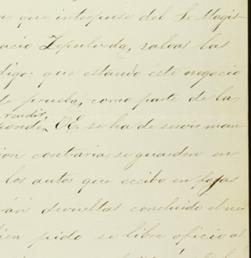 que interpuso del Sr Magis
acio Sepulveda, salvas las
digo: que estando este negocio
de prueba, como parte de la
rendir
ponde, VE se ha de servir man
ion contraria, se guarden en
los autos que recibo en fojas
rán devueltas concluido el ne
pido se libre oficio al